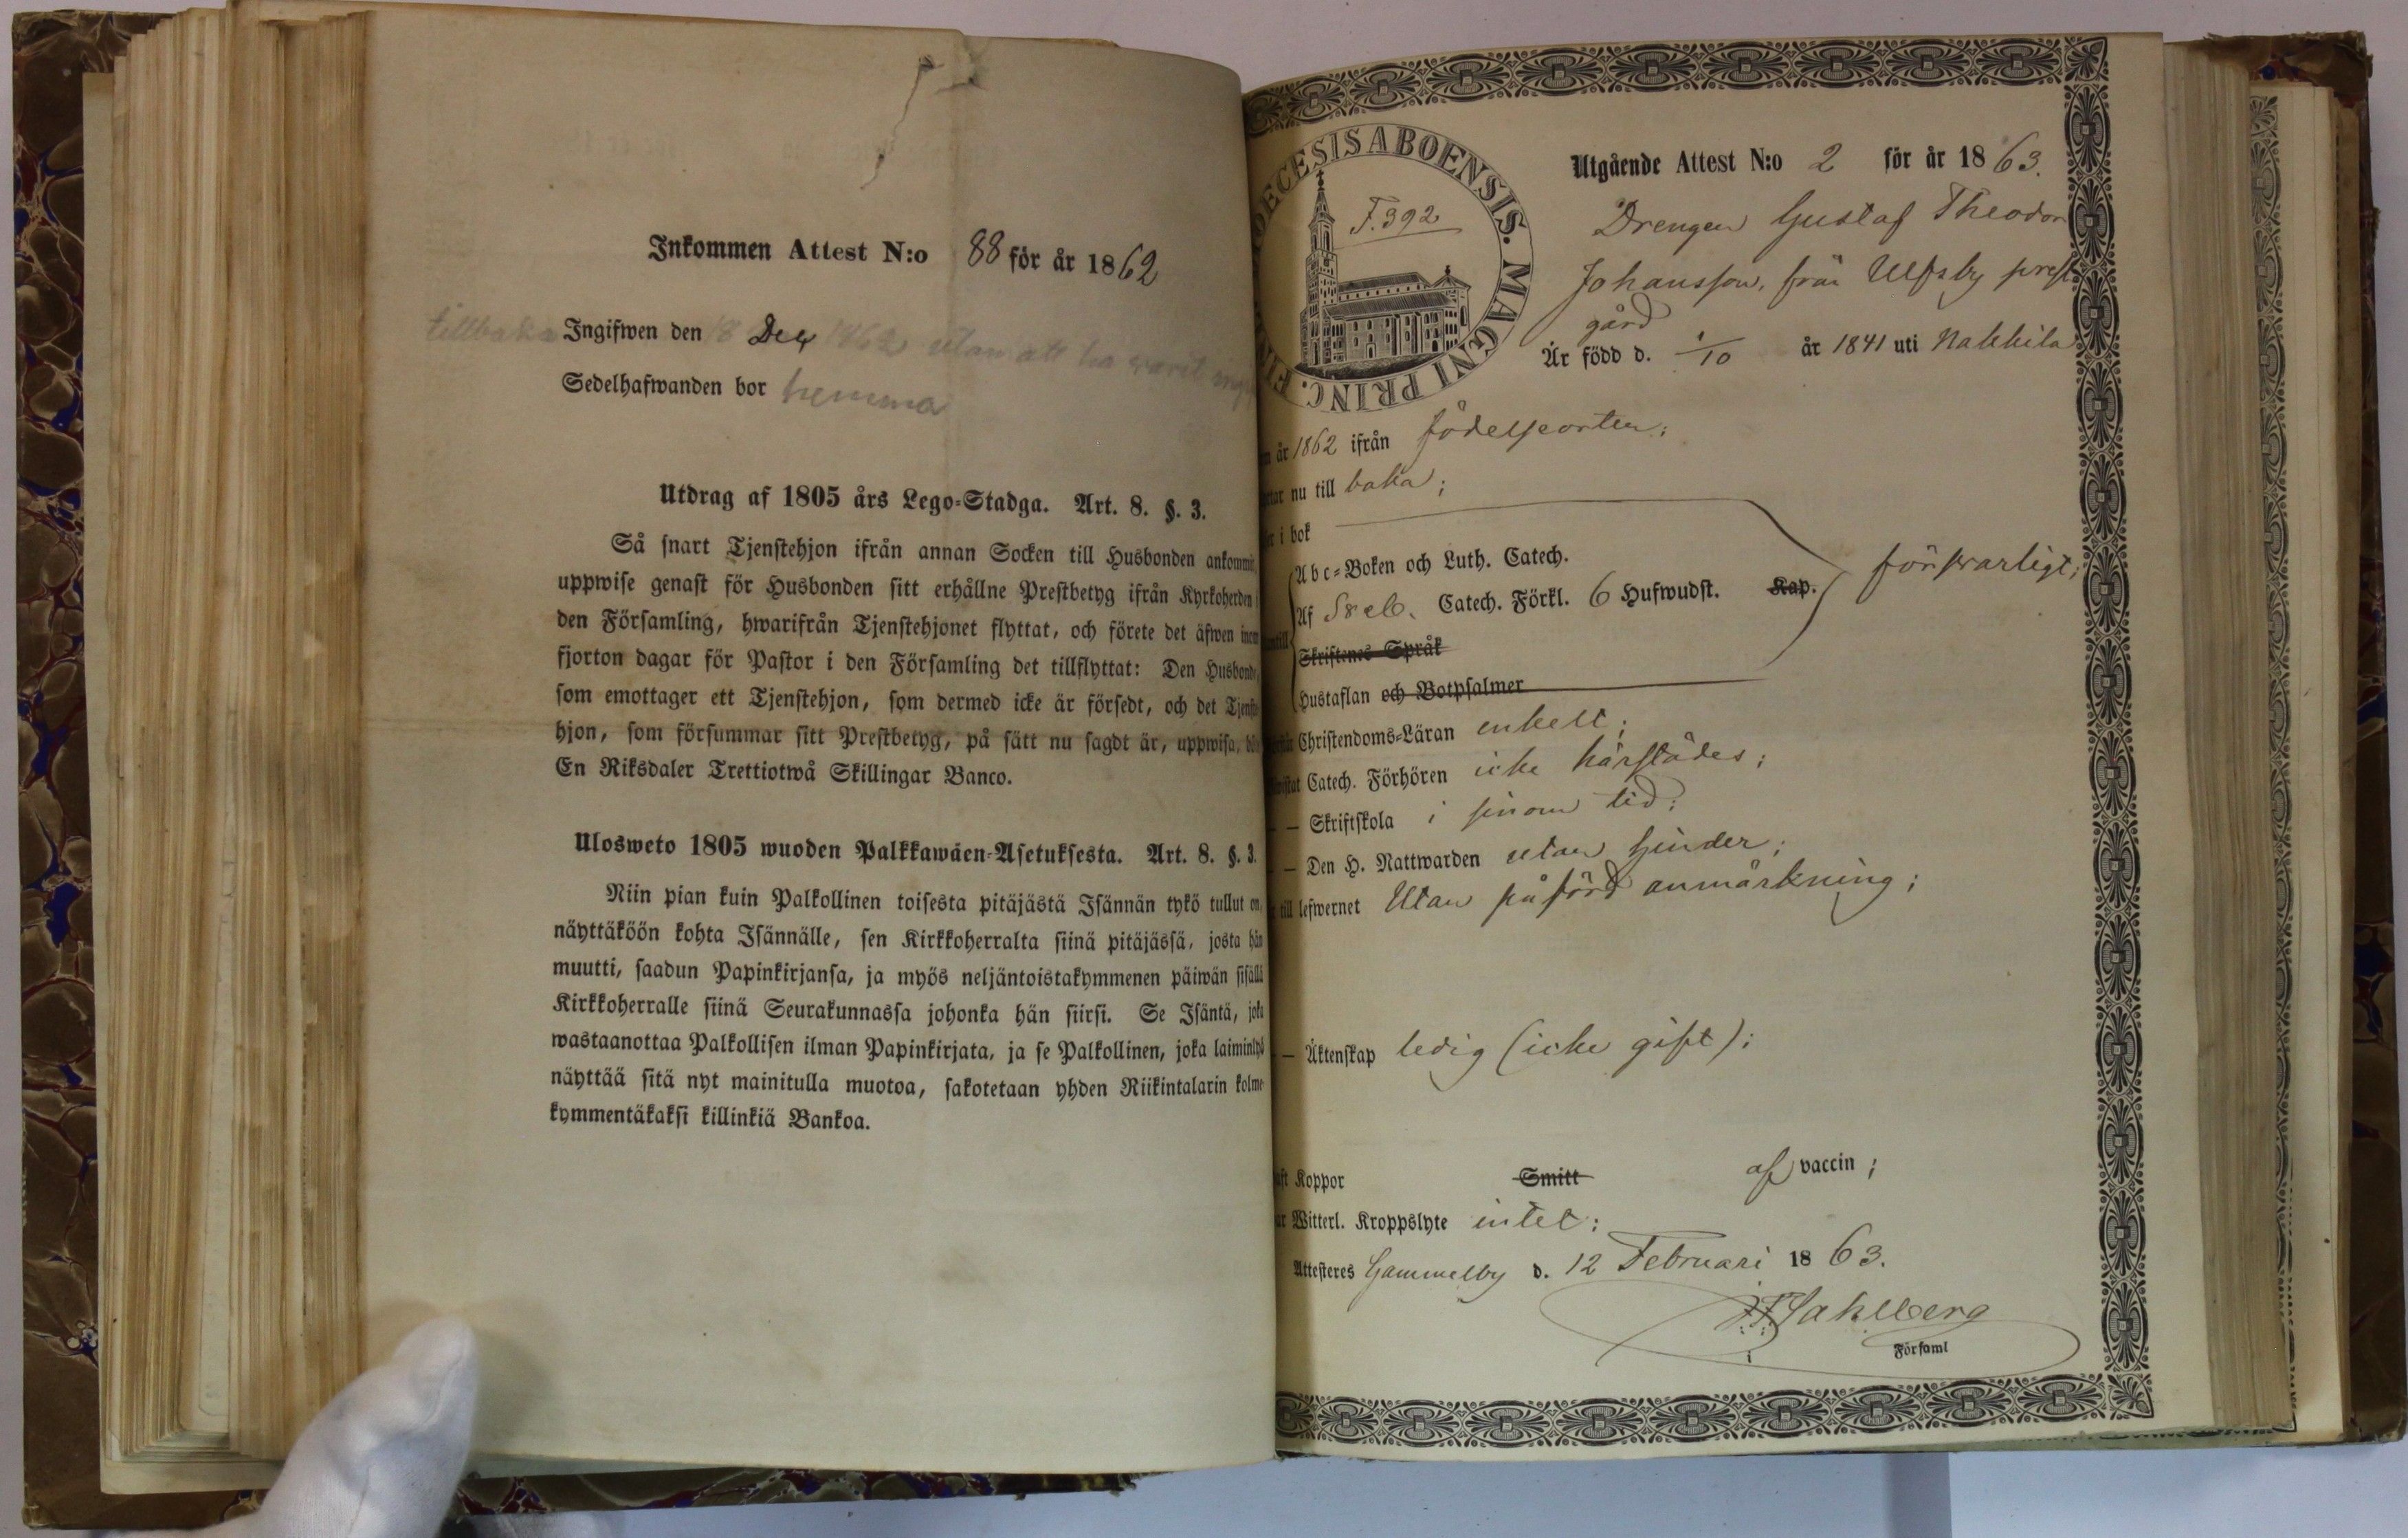 Inkommen Attest N:o 88 för år 1862
tillbaka Ingifwen den 8 Dec 1862 utan att ha warit
Sedelhafwanden bor hemma
Utdrag af 1805 års Lego-Stadga. Art. 8. §. 3.
Så snart Tjenstehjon ifrån annan Socken till Husbonden ankommit,
uppwise genast för Husbonden sitt erhållne Prestbetyg ifrån Kyrkoherden
den Församling, hwarifrån Tjenstehjonet flyttat, och förete det äfwen inom
fjorton dagar för Pastor i den Församling det tillflyttat: Den Husbonde,
som emottager ett Tjenstehjon, som dermed icke är försedt, och det Tjenste
hjon, som försummar sitt Prestbetyg, på sätt nu sagdt är, uppwisa,
En Riksdaler Trettiotwå Skillingar Banco.
Ulosweto 1805 wuoden Palkkawäen-Asetuksesta. Art. 8. §. 3.
Niin pian kuin Palkollinen toisesta pitäjästä Isännän tykö tullut on,
näyttäköön kohta Isännälle, sen Kirkkoherralta siinä pitäjässä, josta hän
muutti, saadun Papinkirjansa, ja myös neljäntoistakymmenen päiwän sisällä
Kirkkoherralle siinä Seurakunnassa johonka hän siirsi. Se Isäntä, joka
wastaanottaa Palkollisen ilman Papinkirjata, ja se Palkollinen, joka laiminlyö
näyttää sitä nyt mainitulla muotoa, sakotetaan yhden Riikintalarin kolme-
kymmentäkaksi killinkiä Bankoa.
DECESIS ABOENSIS. MAGNI PRINC. FIN
F. 392
Utgående Attest N:o 2 för år 1863.
Drengen Gustaf Theodor
Johansson, från Ulfsby prest
gård
Är född d. 1/10 år 1841 uti Nakkila
år 1862 ifrån födelseorten;
nu till baka;
i bok
Abc-Boken och Luth. Catech.
Af Sveb. Catech. Förkl. 6 Hufwudst. Kap. förswarligt;
Skriftenes Språk
Hustaflan och Botpsalmer
Christendoms-Läran enkelt;
Catech. Förhören icke härstädes;
— Skriftskola i sinom tid;
— Den H. Nattwarden utan hinder;
till lefwernet Utan påförd anmärkning;
— Äktenskap ledig (icke gift);
Koppor Smitt af vaccin;
Witterl. Kroppslyte intet;
Attesteres Gammelby d. 12 Februari 1863.
Sahlberg
i Församl